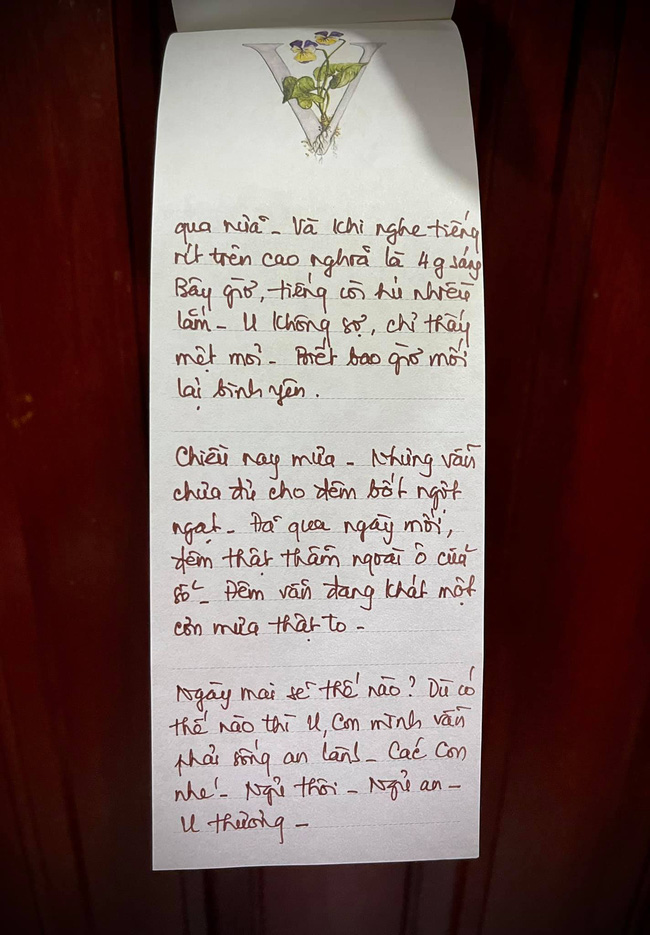 V
qua nữa - Và khi nghe tiếng
rít trên cao nghĩa là 4g sáng
Bây giờ, tiếng còi hú nhiều
lắm - U không sợ, chỉ thấy
mệt mỏi - Biết bao giờ mới
lại bình yên.
Chiều nay mưa - Nhưng vẫn
chưa đủ cho đêm bớt ngột
ngạt - Đã qua ngày mới,
đêm thật thẫm ngoài ô cửa
sổ - Đêm vẫn đang khát một
cơn mưa thật to -
Ngày mai sẽ thế nào? Dù có
thế nào thì U, Con mình vẫn
phải sống an lành! - Các Con
nhé! - Ngủ thôi - Ngủ an -
U thương -